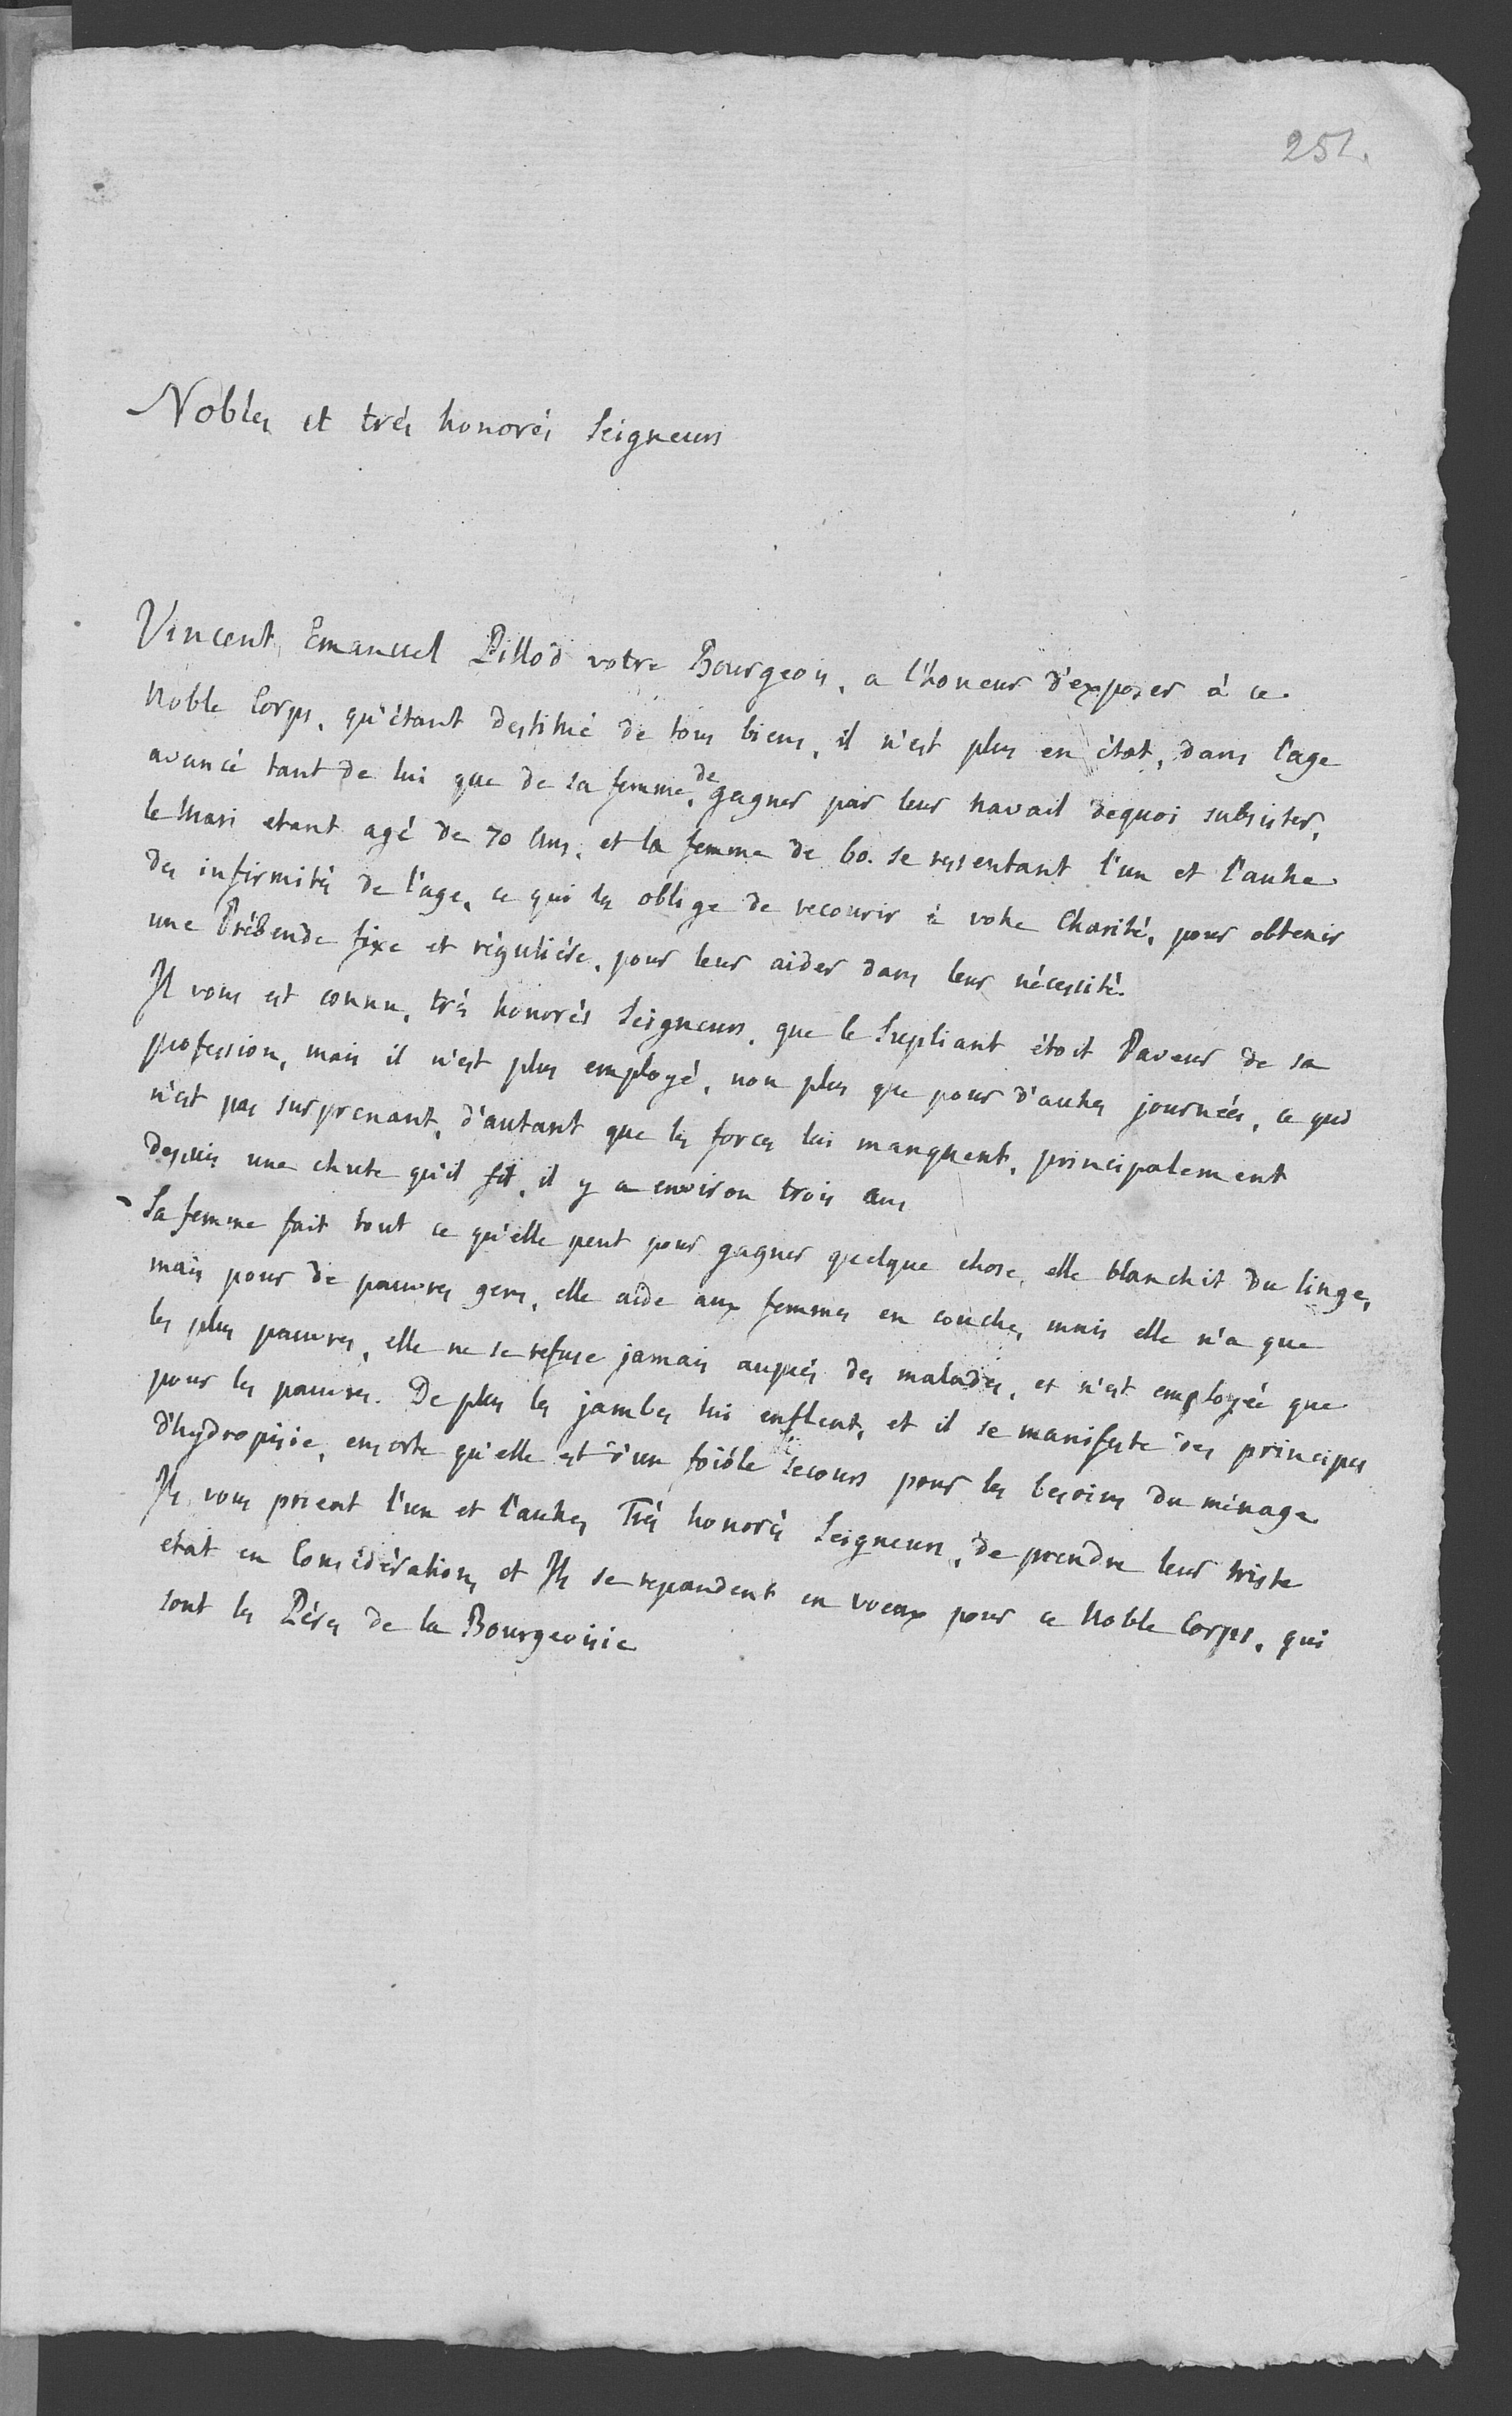 251.
Nobles et trés honorés Seigneurs
Vincent Emanuel Pillod votre Bourgeois, a l'honeur d'exposer à ce
Noble Corps, qu'étant destitué de tous biens, il n'est plus en état, dans l'age
avancé tant de lui que de sa femme, de gagner par leur travail dequoi subsister,
le Mari etant agé de 70 Ans, et la femme de 60. se ressentant l'un et l'autre
des infirmités de l'age, ce qui les oblige de recourir à votre Charité, pour obtenir
une Prébende fixe et réguliére, pour leur aider dans leur nécessité.
Il vous est connu, trés honorés Seigneurs, que le Supliant étoit Paveur de sa
profession, mais il n'est plus employé, non plus que pour d'autres journées, ce qui
n'est pas surprenant, d'autant que les forces lui manquent, principalement
depuis une chute qu'il fit, il y a environ trois ans
Sa femme fait tout ce qu'elle peut pour gagner quelque chose, elle blanchit du linge,
mais pour de pauvres gens, elle aide aux femmes en couche, mais elle n'a que
les plus pauvres, elle ne se refuse jamais auprés des malades, et n'est employée que
pour les pauvres. De plus les jambes lui enflent, et il se manifeste des principes
d'hydropisie, ensorte qu'elle est d'un foible secours pour les besoins du ménage
Ils vous prient l'un et l'autre, Trés honorés Seigneurs, de prendre leur triste
etat en Considération, et Ils se repandent en voeux pour ce Noble Corps, qui
sont les Péres de la Bourgeoisie